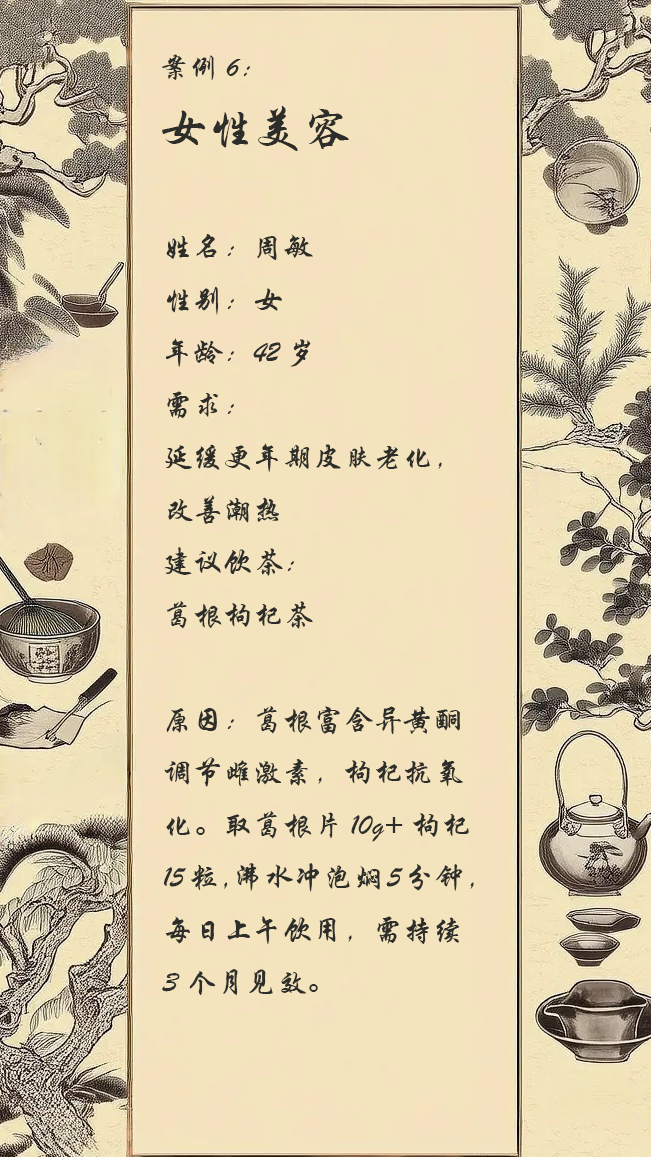 案例 6：
女性美容
姓名：周敏
性别：女
年龄：42 岁
需求：
延缓更年期皮肤老化，
改善潮热
建议饮茶：
葛根枸杞茶
原因：葛根富含异黄酮
调节雌激素，枸杞抗氧
化。取葛根片 10g+ 枸杞
15 粒，沸水冲泡焖5分钟，
每日上午饮用，需持续
3 个月见效。